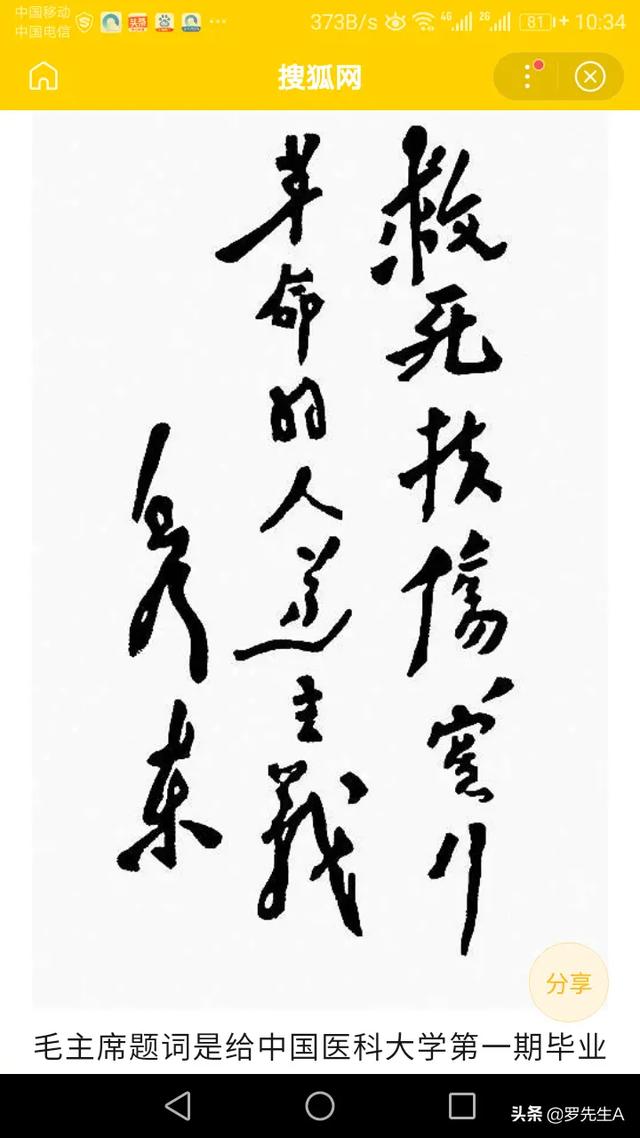 中国移动 373B/s 4G 2G 81 10:34
中国电信
搜狐网
救死扶傷實行
革命的人道主義
毛澤東
分享
毛主席题词是给中国医科大学第一期毕业
头条 @罗先生A